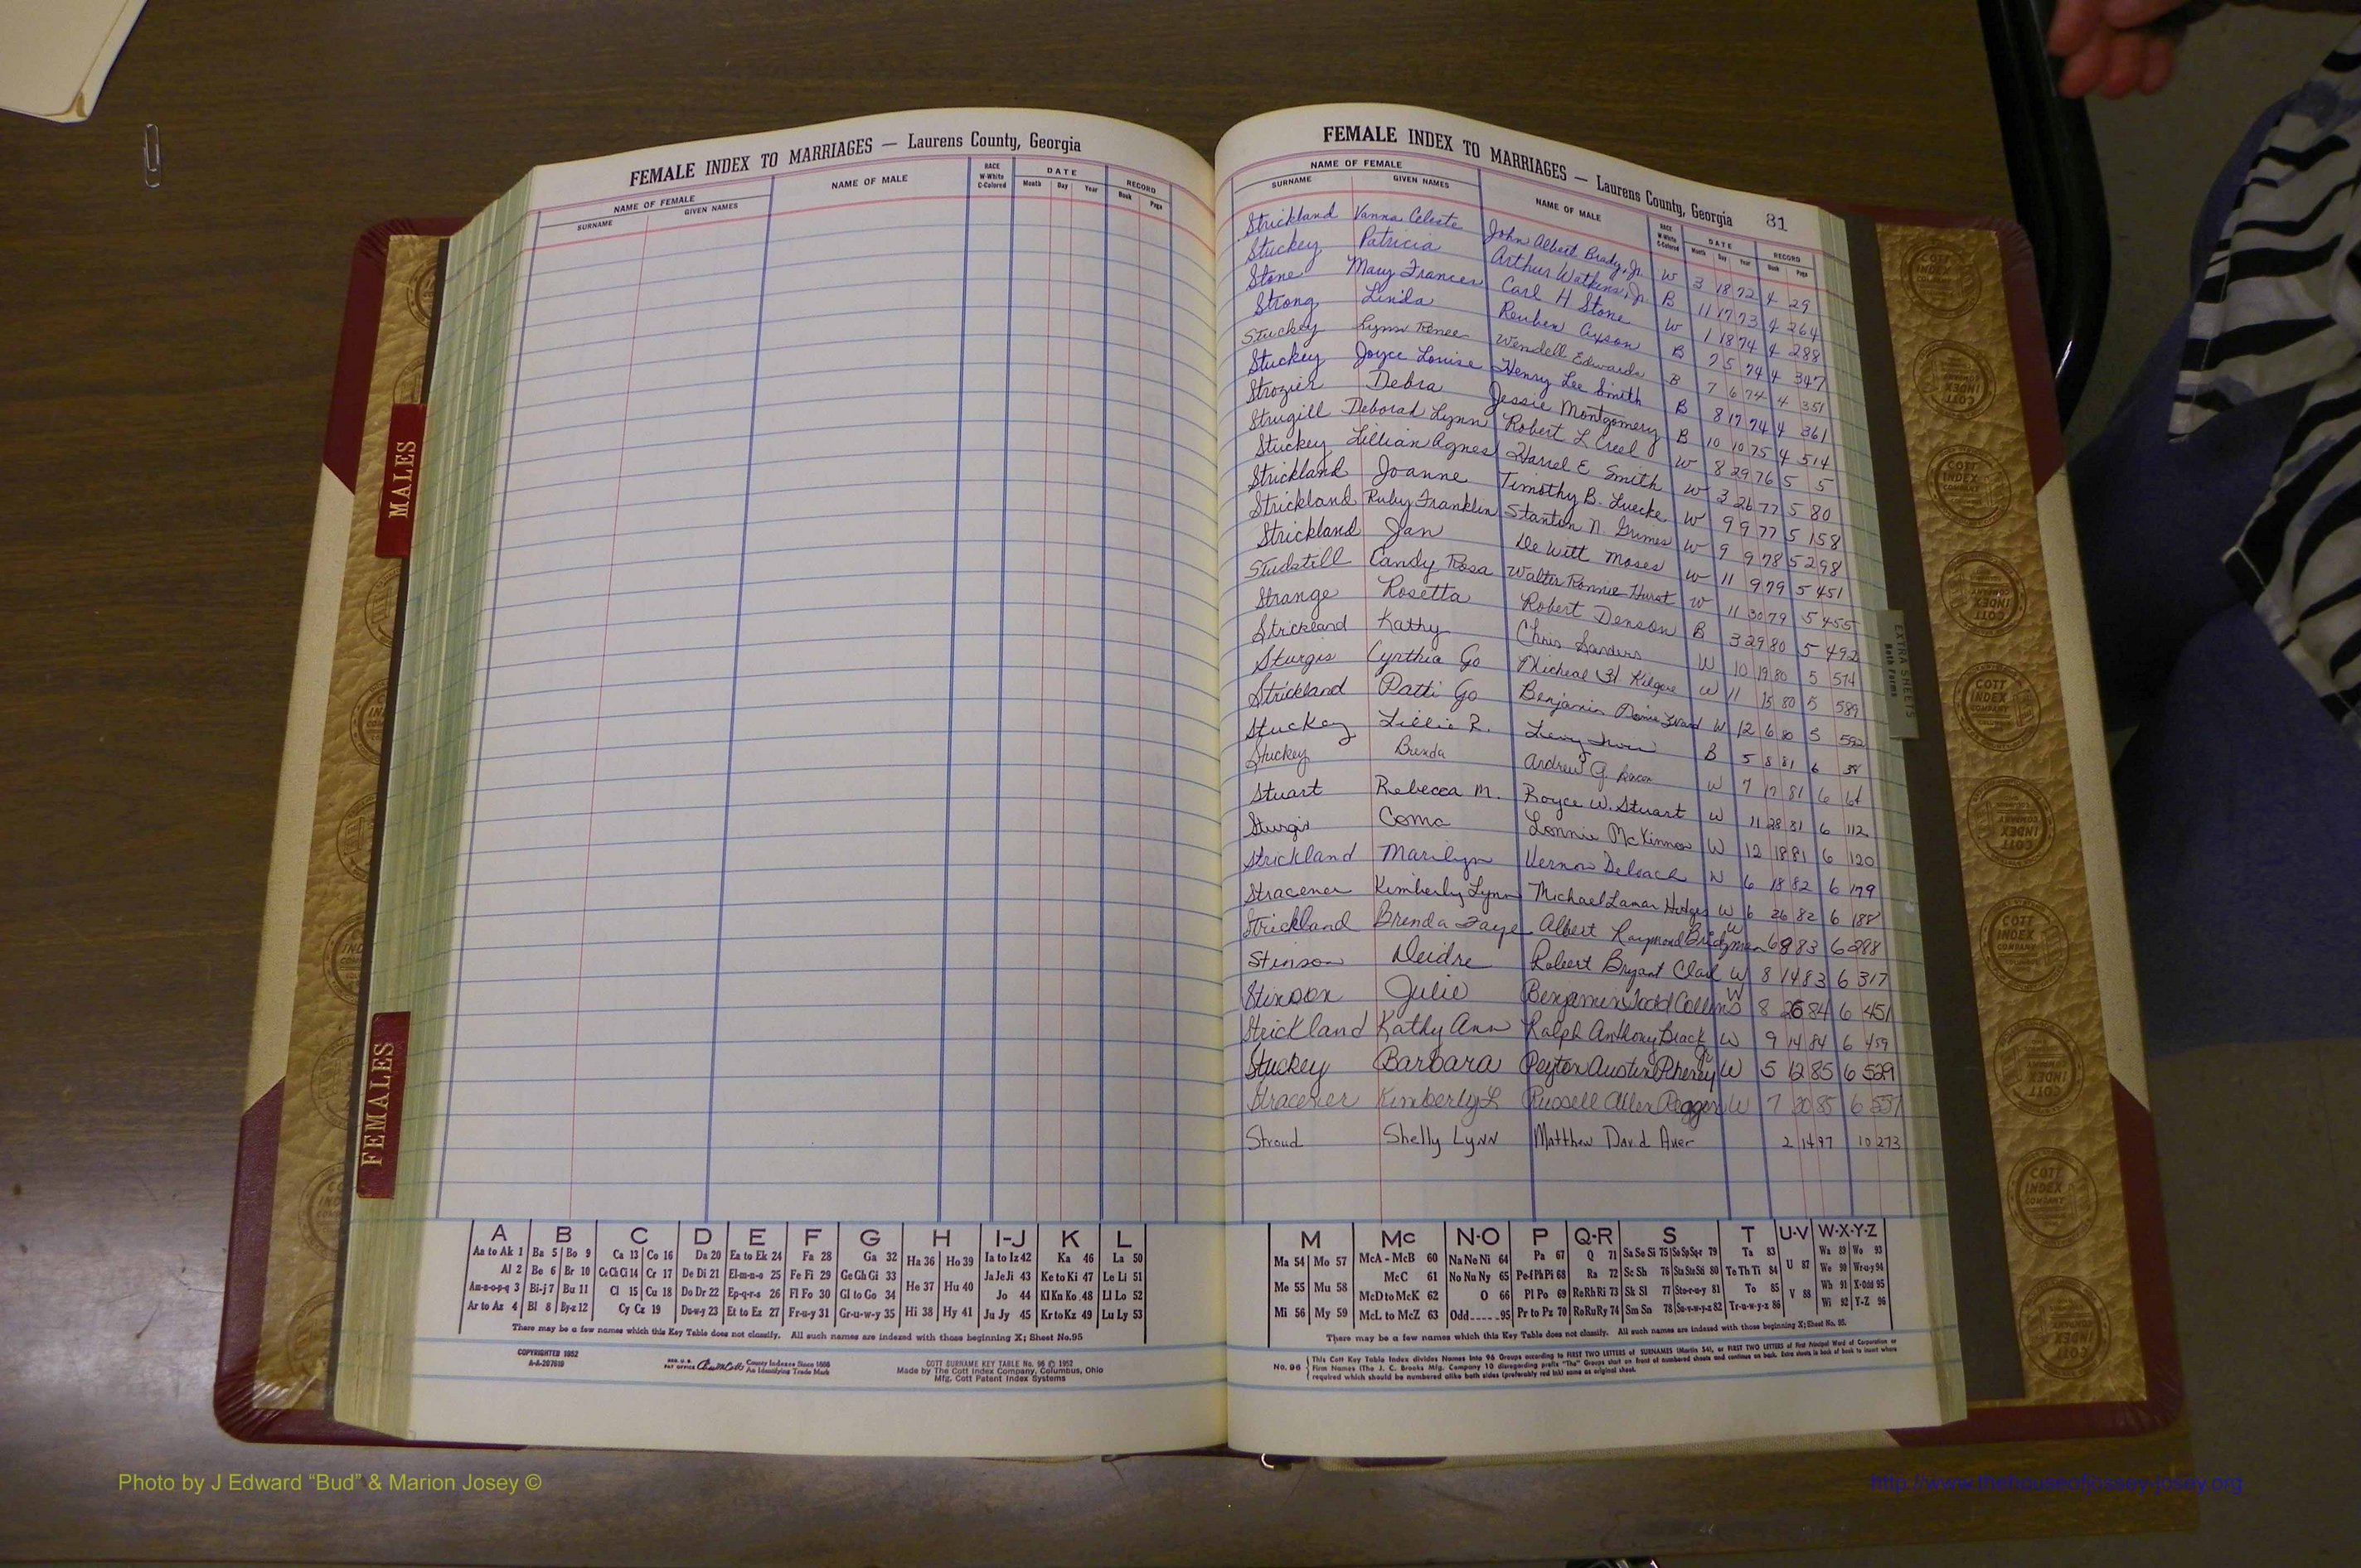 FEMALE INDEX TO MARRIAGES — Laurens County, Georgia
NAME OF FEMALE
SURNAME GIVEN NAMES NAME OF MALE RACE W-White C-Colored DATE Month Day Year RECORD Book Page
MALES
FEMALES
A B C D E F G H I-J K L
Aa to Ak 1 Ba 5 Bo 9 Ca 13 Co 16 Da 20 Ea to Ek 24 Fa 28 Ga 32 Ha 36 Ho 39 Ia to Iz 42 Ka 46 La 50
Al 2 Be 6 Br 10 Ce Ch Ci 14 Cr 17 De Di 21 El-m-n-o 25 Fe Fi 29 Ge Gh Gi 33 He 37 Hu 40 Ja Je Ji 43 Ke to Ki 47 Le Li 51
Am-n-o-p-q 3 Bi-j 7 Bu 11 Cl 15 Cu 18 Do Dr 22 Ep-q-r-s 26 Fl Fo 30 Gl to Go 34 Jo 44 Kl Kn Ko 48 Ll Lo 52
Ar to Az 4 Bl 8 By-z 12 Cy Cz 19 Du-w-y 23 Et to Ez 27 Fr-u-y 31 Gr-u-w-y 35 Hi 38 Hy 41 Ju Jy 45 Kr to Kz 49 Lu Ly 53
There may be a few names which this Key Table does not classify. All such names are indexed with those beginning X; Sheet No. 95
COPYRIGHTED 1952
A-A-207919
County Indexes Since 1888
An Identifying Trade Mark
COTT SURNAME KEY TABLE No. 96 © 1952
Made by The Cott Index Company, Columbus, Ohio
Mfg. Cott Patent Index Systems
FEMALE INDEX TO MARRIAGES — Laurens County, Georgia 81
NAME OF FEMALE
SURNAME GIVEN NAMES NAME OF MALE RACE W-White C-Colored DATE Month Day Year RECORD Book Page
Strickland Vanna Celeste John Albert Brady, Jr. W 3 18 72 4 29
Stuckey Patricia Arthur Watkins, Jr. B 11 17 73 4 264
Stone Mary Frances Carl H Stone W 1 18 74 4 288
Strong Linda Reuben Axson B 7 5 74 4 347
Stuckey Lynn Renee Wendell Edwards B 7 6 74 4 351
Stuckey Joyce Louise Henry Lee Smith B 8 17 74 4 361
Strozier Debra Jessie Montgomery B 10 10 75 4 514
Strugill Deborah Lynn Robert L Creel W 8 29 76 5 5
Stuckey Lillian Agnes Harrel E. Smith W 3 26 77 5 80
Strickland Joanne Timothy B. Luecke W 9 9 77 5 158
Strickland Ruby Franklin Stanton N. Grimes W 9 9 78 5 298
Strickland Jan De Witt Moses W 11 9 79 5 451
Studstill Candy Rosa Walter Ronnie Hurst W 11 30 79 5 455
Strange Rosetta Robert Denson B 3 29 80 5 492
Strickland Kathy Chris Sanders W 10 19 80 5 574
Sturgis Cynthia Jo Micheal H Kilgore W 11 15 80 5 589
Strickland Patti Jo Benjamin W 12 6 80 5 592
Stuckey Lillie R. B 5 8 81 6 38
Stuckey Brenda Andrew G W 7 17 81 6 64
Stuart Rebecca M. Royce W. Stuart W 11 28 81 6 112
Sturgis Coma Lonnie McKinnon W 12 18 81 6 120
Strickland Marilyn Vernon Deloach W 6 18 82 6 179
Stracener Kimberly Lynn Michael Lamar Hodges W 6 26 82 6 188
Strickland Brenda Faye Albert Raymond Bridgman W 6 9 83 6 288
Stinson Deidre Robert Bryant Clark W 8 14 83 6 317
Stinson Julie Benjamin Todd Collins W 8 25 84 6 451
Strickland Kathy Ann Ralph Anthony Brack W 9 14 84 6 459
Stuckey Barbara Peyton Austin Pherry Jr W 5 12 85 6 529
Stracener Kimberly L Russell Allen W 7 20 85 6 557
Stroud Shelly Lynn Matthew David Aver 2 14 97 10 273
EXTRA SHEETS
Both Forms
M Mc N-O P Q-R S T U-V W-X-Y-Z
Ma 54 Mo 57 McA - McB 60 Na Ne Ni 64 Pa 67 Q 71 Sa Se Si 75 So Sp Sq-r 79 Ta 83 U 87 Wa 89 Wo 93
McC 61 No Nu Ny 65 Pe-f Ph Pi 68 Ra 72 Sc Sh 76 Sta Ste Sti 80 Te Th Ti 84 We 90 Wr-u-y 94
Me 55 Mu 58 McD to McK 62 O 66 Pl Po 69 Re Rh Ri 73 Sk Sl 77 Sto-r-u-y 81 To 85 V 88 Wh 91 X-Odd 95
Mi 56 My 59 McL to McZ 63 Odd 95 Pr to Pz 70 Ro Ru Ry 74 Sm Sn 78 Su-v-w-y-z 82 Tr-u-w-y-z 86 Wi 92 Y-Z 96
There may be a few names which this Key Table does not classify. All such names are indexed with those beginning X; Sheet No. 95.
No. 96 This Cott Key Table Index divides Names into 96 Groups according to FIRST TWO LETTERS of SURNAMES (Martin 54), or FIRST TWO LETTERS of First Principal Word of Corporation or
Firm Names (The J. C. Brooks Mfg. Company 10 disregarding prefix "The" Groups start on front of numbered sheets and continue on back. Extra sheets in back of book to insert where
required which should be numbered alike both sides (preferably red ink) same as original sheet.
COTT INDEX COMPANY
Photo by J Edward “Bud” & Marion Josey ©
http://www.thehouseofjossey-josey.org